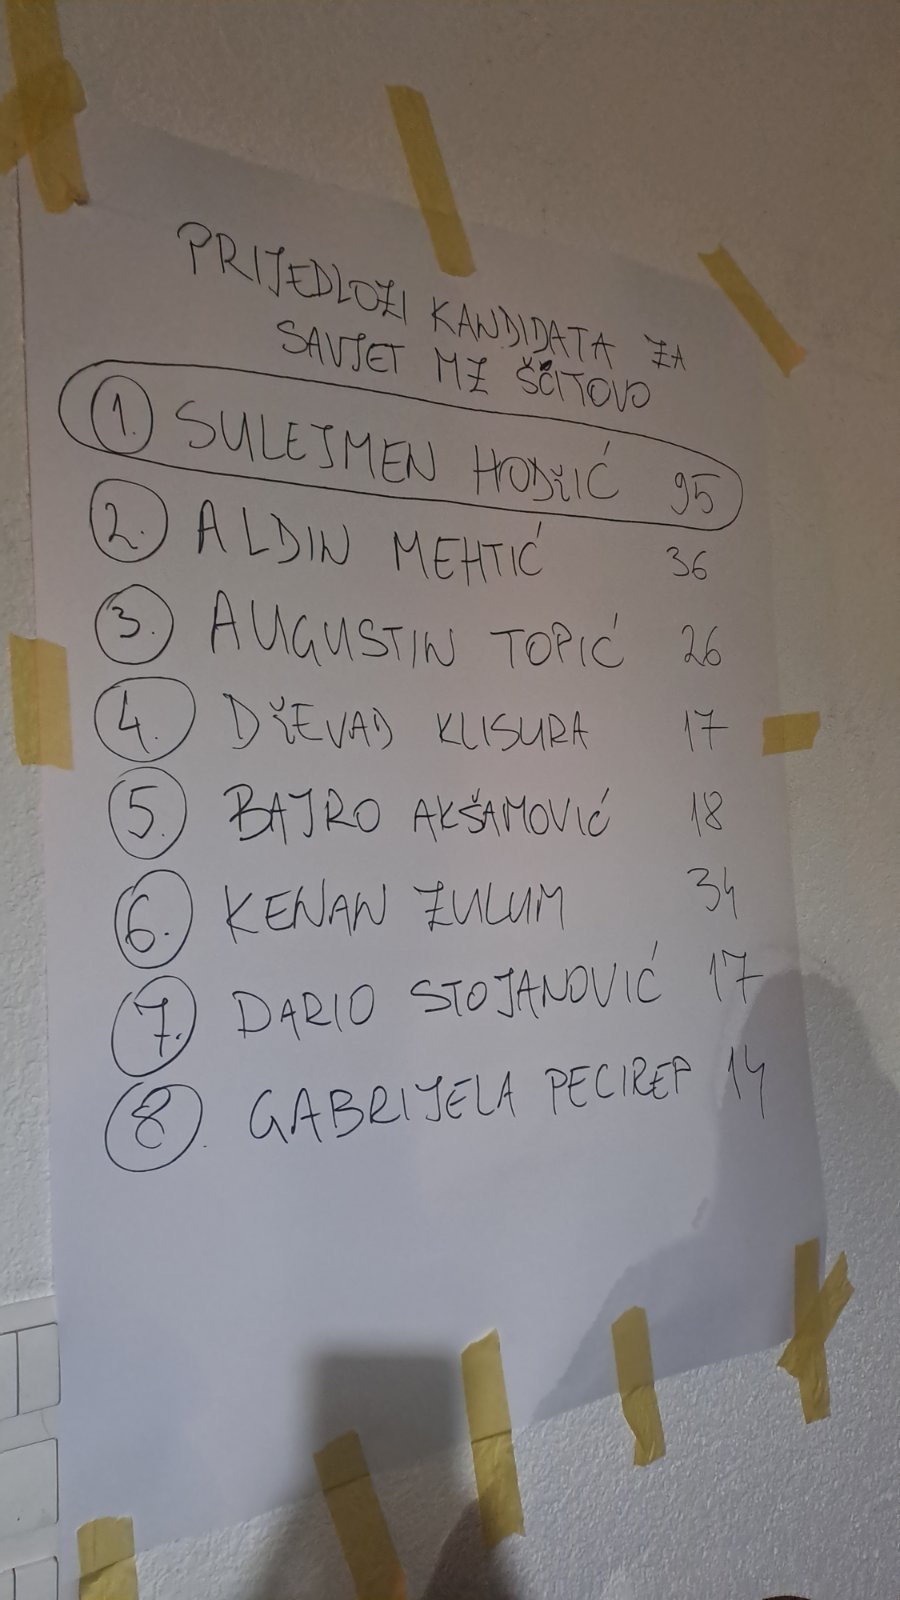 PRIJEDLOZI KANDIDATA ZA
SAVJET MZ ŠČITOVO
1. SULEJMEN HODžIĆ 95
2. ALDIN MEHTIĆ 36
3. AUGUSTIN TOPIĆ 26
4. DžEVAD KLISURA 17
5. BAJRO AKŠAMOVIĆ 18
6. KENAN ZULUM 34
7. DARIO STOJANOVIĆ 17
8. GABRIJELA PECIREP 14